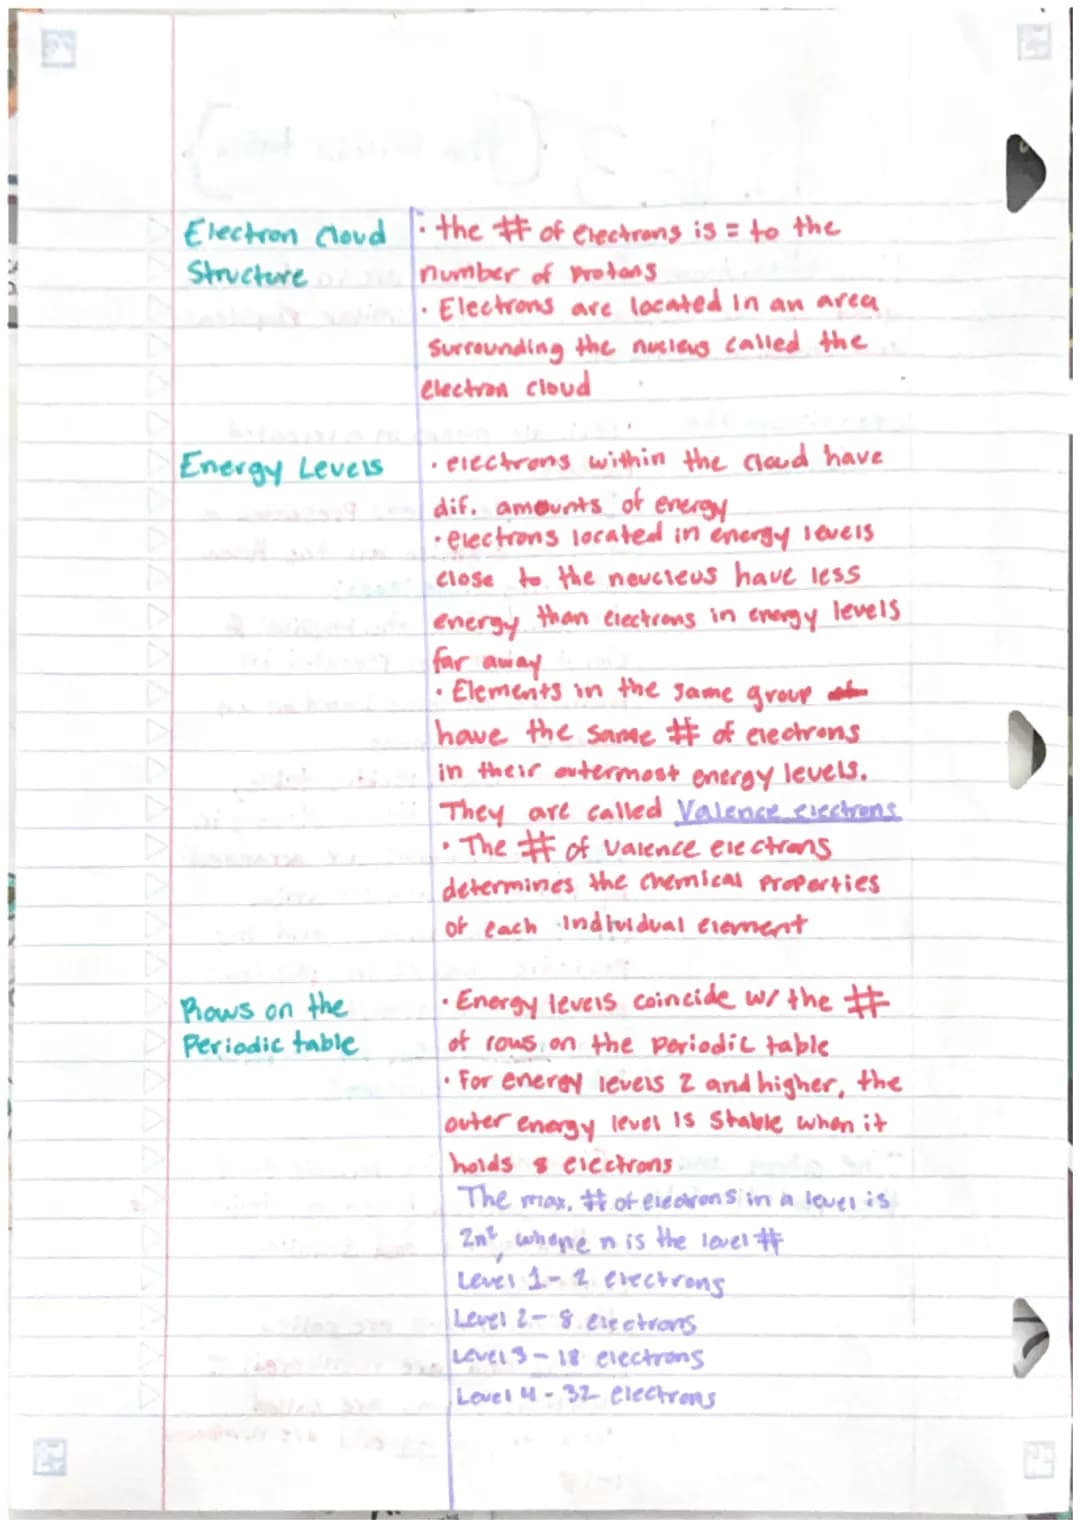 Electron Cloud
Structure
· the # of electrons is = to the
number of protons
· Electrons are located in an area
surrounding the nucleus called the
electron cloud
Energy Levels
· electrons within the cloud have
dif. amounts of energy
· electrons located in energy levels
close to the neucleus have less
energy than electrons in energy levels
far away
· Elements in the same group
have the same # of electrons
in their outermost energy levels.
They are called Valence electrons
· The # of valence electrons
determines the chemical properties
of each individual element
Rows on the
Periodic table
· Energy levels coincide w/ the #
of rows on the periodic table
· For energy levels 2 and higher, the
outer energy level is stable when it
holds 8 electrons
The max, # of electrons in a level is
2n², where n is the level #
Level 1- 2 electrons
Level 2- 8 electrons
Level 3 - 18 electrons
Level 4 - 32 electrons